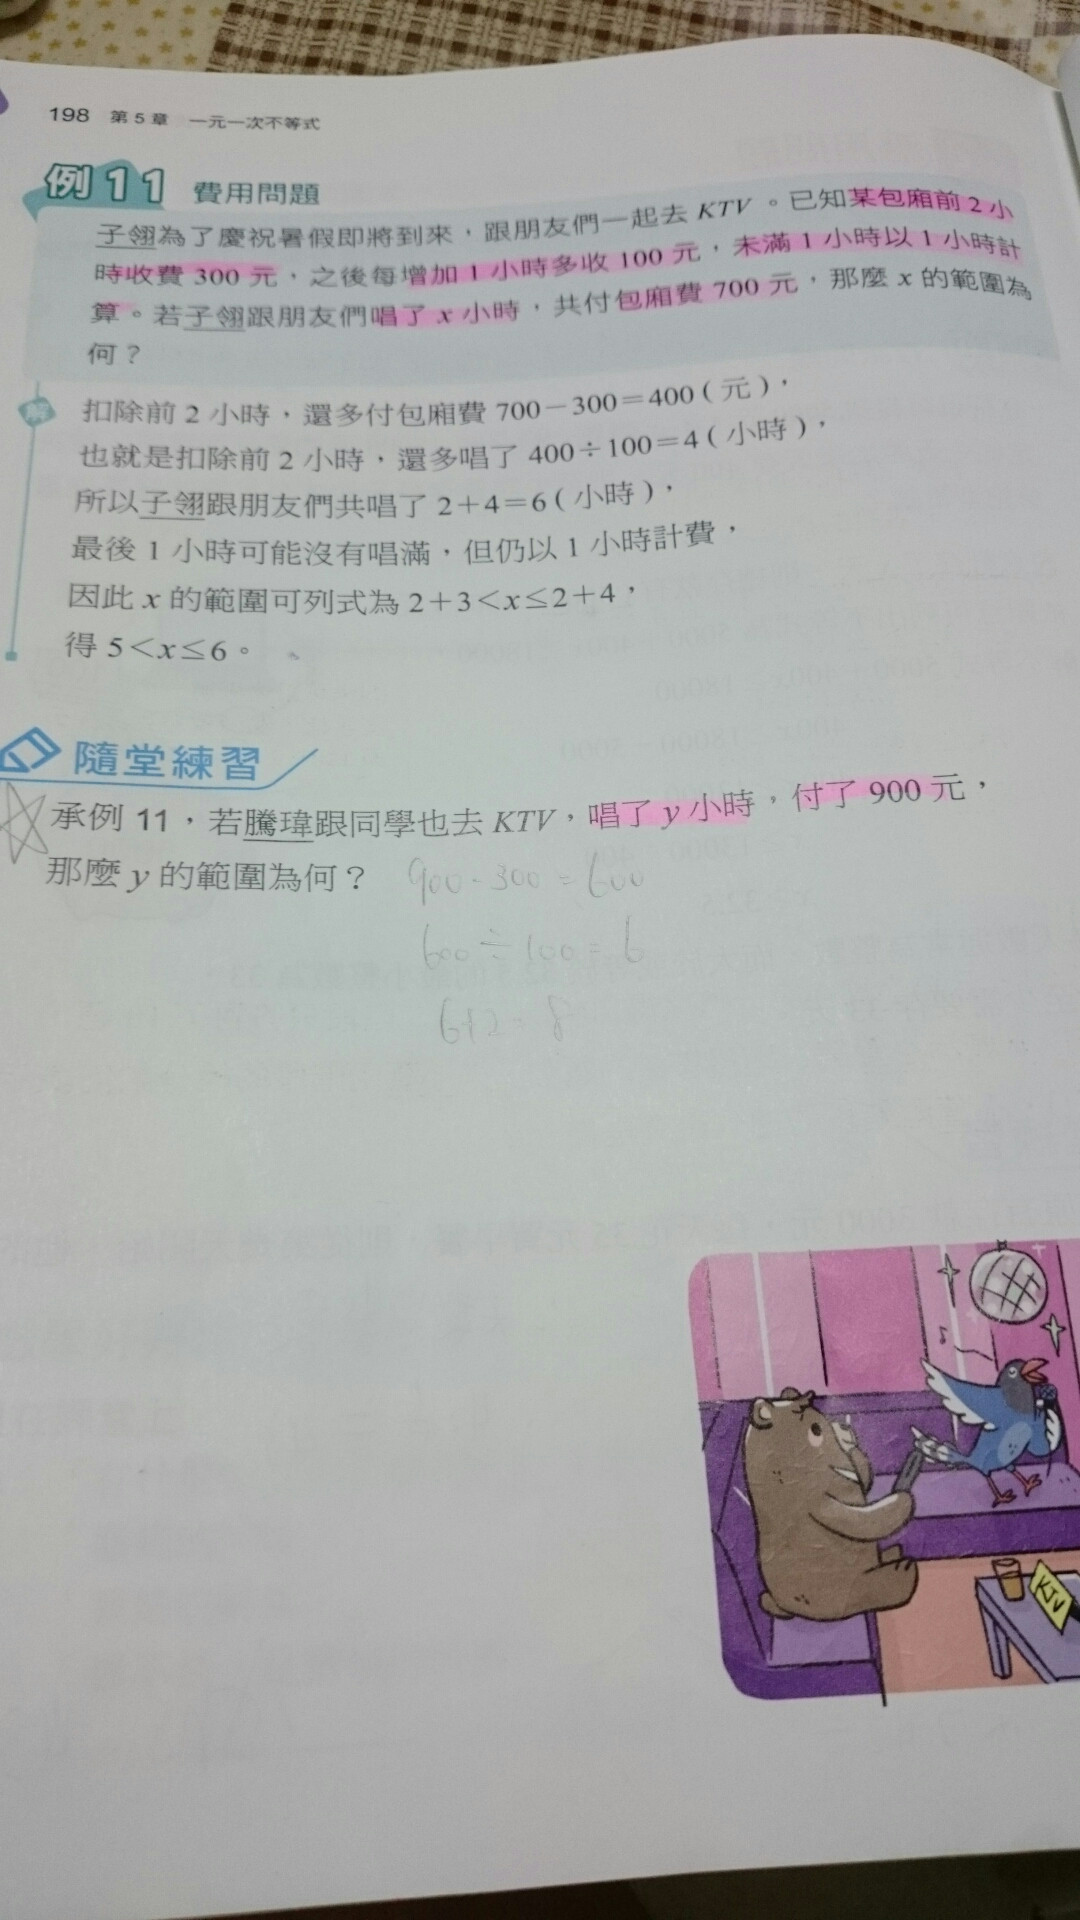 198 第5章 一元一次不等式
例11 費用問題
子翎為了慶祝暑假即將到來，跟朋友們一起去 KTV。已知某包廂前2小
時收費300元，之後每增加1小時多收100元，未滿1小時以1小時計
算。若子翎跟朋友們唱了x小時，共付包廂費700元，那麼x的範圍為
何？
解
扣除前2小時，還多付包廂費700－300＝400（元），
也就是扣除前2小時，還多唱了400÷100＝4（小時），
所以子翎跟朋友們共唱了2＋4＝6（小時），
最後1小時可能沒有唱滿，但仍以1小時計費，
因此x的範圍可列式為2＋3＜x≤2＋4，
得5＜x≤6。
隨堂練習
承例11，若騰瑋跟同學也去KTV，唱了y小時，付了900元，
那麼y的範圍為何？ 900-300=600
600÷100=6
6+2=8
KTV